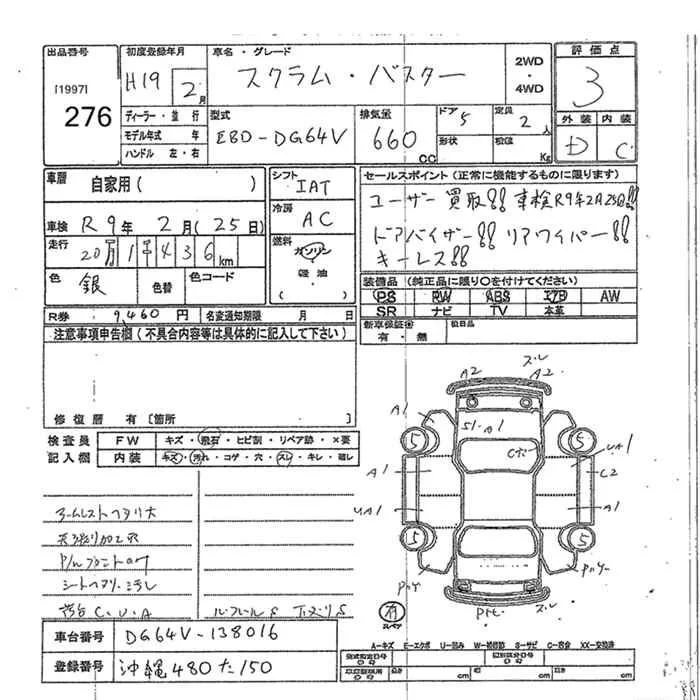 出品番号 初度登録年月 車名・グレード 2WD・4WD 評価点
[1997] 276 H19 2月 スクラム・バスター 3
ディーラー・並行 型式 排気量 ドア 定員 外装 内装
モデル年式 年 EBD-DG64V 660cc 5 2人 D C
ハンドル 左・右 形状 積量 Kg
車歴 自家用( ) シフト IAT セールスポイント(正常に機能するものに限ります)
車検 R9年2月(25日) 冷房 AC ユーザー買取!! 車検R9年2月25日!!
走行 20万1千436km 燃料 ガソリン ドアバイザー!! リアワイパー!!
色 銀 色替 色コード 軽油 ( ) キーレス!!
装備品(純正品に限り○を付けてください)
PS RW ABS エアB AW
SR ナビ TV 本革
R券 9,460円 名変通知期限 月 日 新車保証書 有・無 後日品
注意事項申告欄(不具合内容等は具体的に記入して下さい)
修復歴 有[箇所 ]
検査員 FW キズ・飛石・ヒビ割・リペア跡・×要
記入欄 内装 キズ・汚れ・コゲ・穴・スレ・キレ・破レ
ズレ
A2 A2
A1 S1・A1
5 5 UA1
A1 C2
UA1 A1
5 5
ズレ
有 スペア
シートヘタリ・ヨゴレ
C.U.A
A-キズ E-エクボ U-凹み W-補修跡 S-サビ C-腐食 XX-交換済
車台番号 DG64V-138016
登録番号 沖縄480た150
cm cm cm